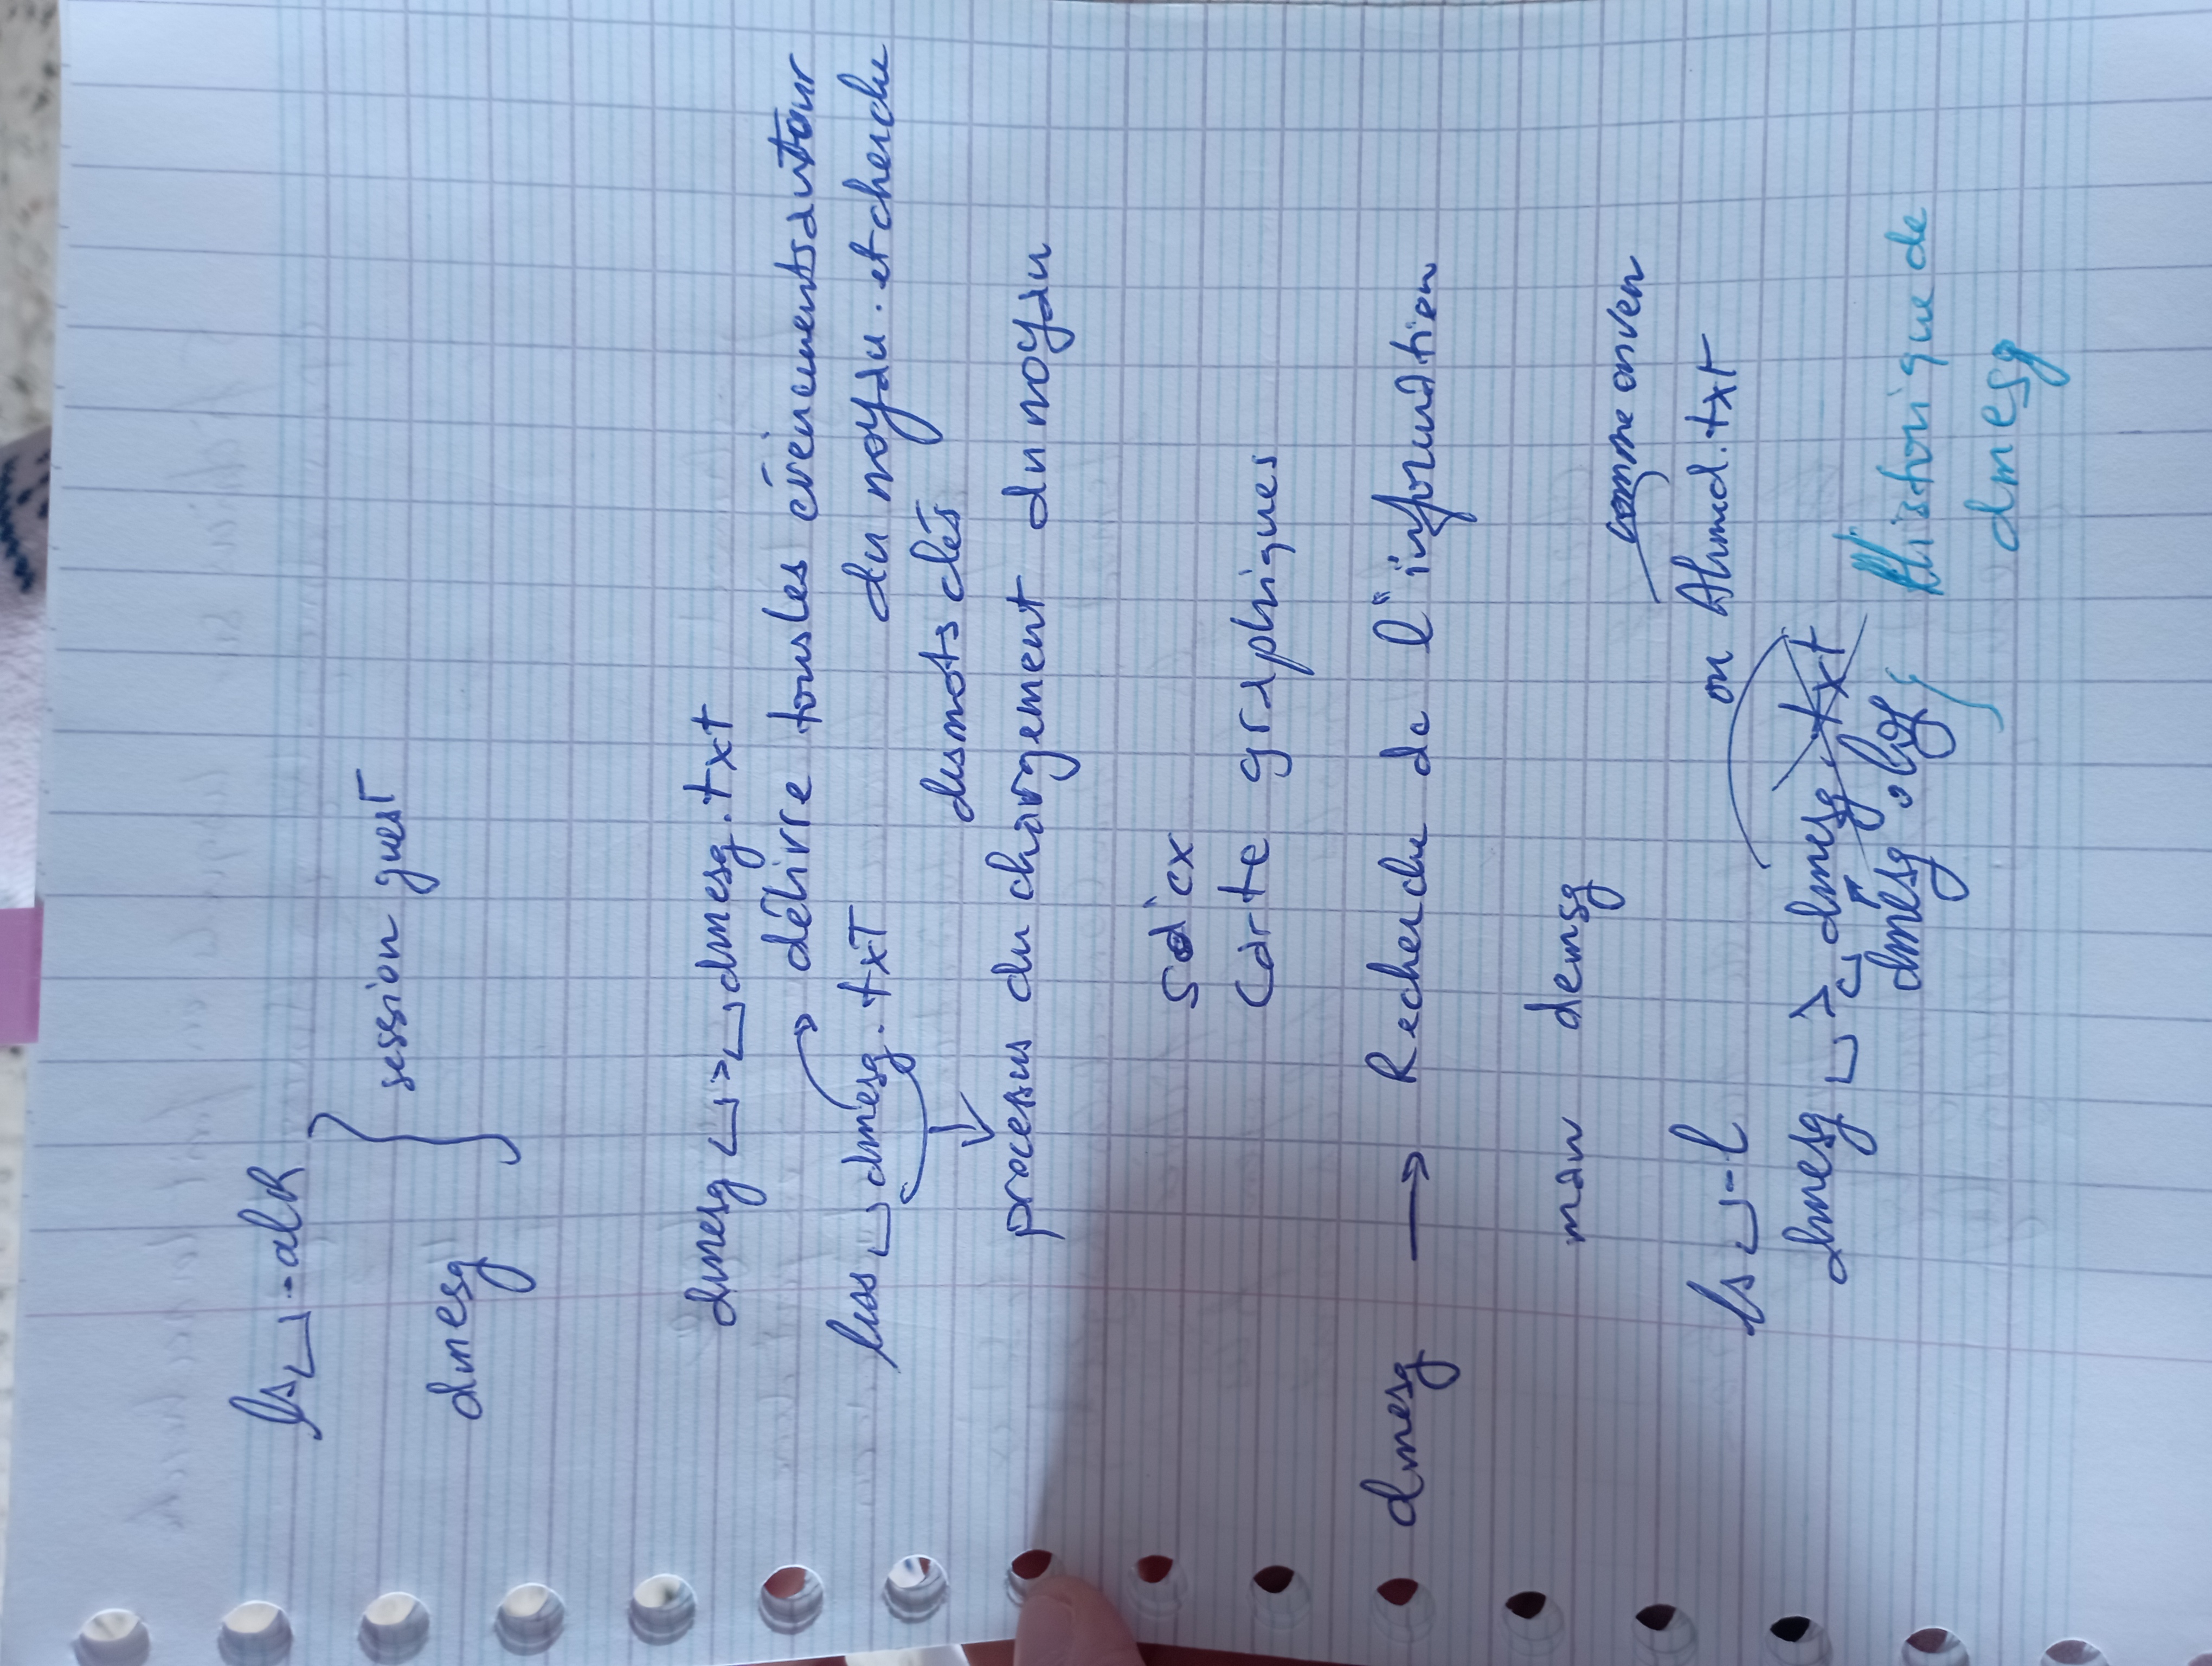 ls ␣ -alR
session guest
dmesg
dmesg ␣ > ␣ dmesg.txt
délivre tous les évènements autour
less ␣ dmesg.txt
du noyau. et cherche
des mots clés
processus du chargement du noyau
carte graphiques
dmesg → Recherche de l'information
man demsg
comme on veu
ls ␣ -l
ou Ahmed.txt
dmesg ␣ > ␣ dmesg.txt
dmesg.log
Historique de
dmesg